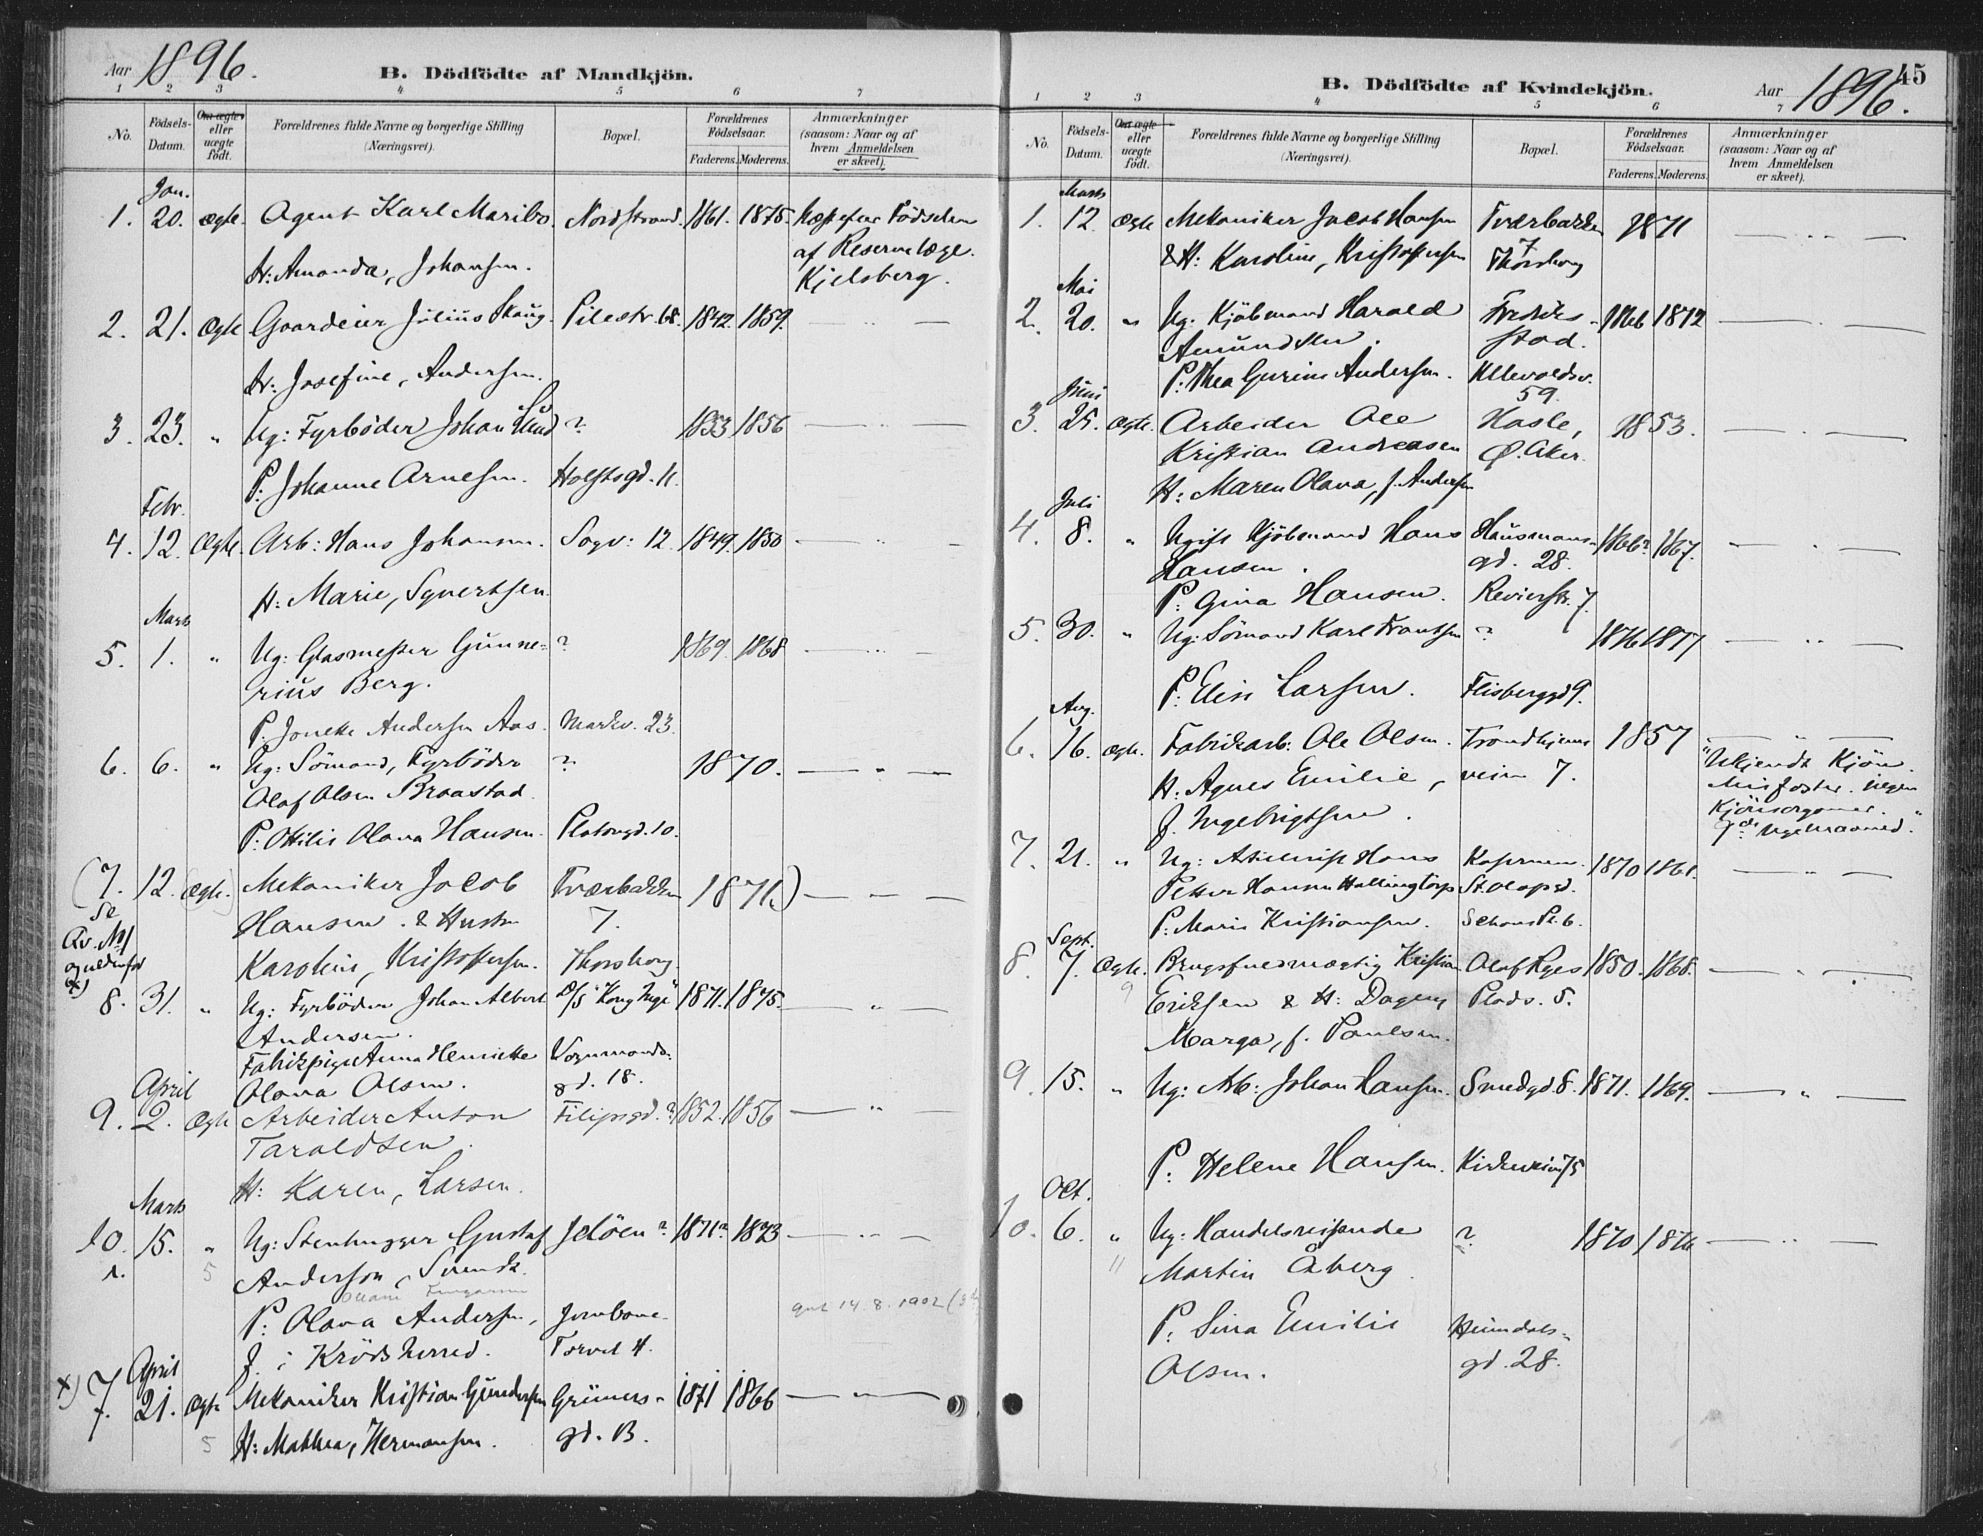 Aar 1896.
B. Dödfödte af Mandkjön.
1 2 3 4 5 6 7
No. Födsels-Datum. Om ægte eller uægte födt. Forældrenes fulde Navne og borgerlige Stilling (Næringsvei). Bopæl. Forældrenes Födselsaar. Faderens. Moderens. Anmærkninger (saasom: Naar og af hvem Anmeldelsen er skeet).
Jan.
1. 20. ægte. Agent Karl Maribo. Nordstrand. 1861. 1875. efter Födselen
H: Amanda, Johansen. af Reservelæge
Kjelsberg.
2. 21. Ægte Gaardeier Julius Skaug. Pilestr. 68. 1842. 1859. — " —
H: Josefine, Andersen.
3. 23. " Ug: Fyrböder Johan Lund ? 1853 1856 — " —
P: Johanne Arnesen. Holstsgd. 11.
Febr.
4. 12. Ægte. Arb: Hans Johansen. Sagv: 12. 1849. 1850 — " —
H: Marie, Syvertsen.
Marts
5. 1. " Ug: Glasmester Gunne- ? 1869. 1868 — " —
rius Berg.
P. Andersen Aas. Markv. 23.
6. 6. " Ug: Sömand, Fyrböder ? 1870. — " —
Olaf Olsen Braastad.
P: Ottilie Olava Hansen. Platougd. 10.
(7. 12. Ægte.) Mekaniker Jacob Tværbakken 1871.) — " —
Se Hansen. & Hustru 7.
Kv. No 1 Karoline, Kristoffersen. Thorshoug.
og nedenfor x)
8. 31. " Ug: Fyrböder Johan Albert D/S "Kong Inge" 1871. 1875. — " —
Andersen.
Fabrikpige Anna Henriette Vognmands-
Olava Olsen. gd. 18.
April
9. 2. Ægte Arbeider Anton Filipsgd. 1852. 1856 — " —
Taraldsen.
H: Karen, Larsen.
Marts
10. 15. " Ug: Stenhugger Gustaf Jelöen? 1871? 1873 — " —
5 Anderson, Svensk.
P: Olava Andersen, Jernbane- 14.8.1902
f. i Krödsherred. Torvet 4.
April
x) 7. 21. Ægte Mekaniker Kristian Gundersen Grüners- 1871 1866 — " —
5 H: Mathea, Hermansen. gd. B.
45
B. Dödfödte af Kvindekjön. Aar 1896.
1 2 3 4 5 6 7
No. Födsels-Datum. Om ægte eller uægte födt. Forældrenes fulde Navne og borgerlige Stilling (Næringsvei). Bopæl. Forældrenes Födselsaar. Faderens. Moderens. Anmærkninger (saasom: Naar og af hvem Anmeldelsen er skeet).
Marts
1. 12. Ægte Mekaniker Jacob Hansen Tværbakken 1871 — " —
& H: Karoline, Kristoffersen 7 Thorshoug
Mai
2. 20. " Ug: Kjöbmand Harald Fredrik- 1866 1872 — " —
Amundsen. stad.
P: Thea Gurine Andersen. Ullevoldsv. 59.
Juni
3. 25. Ægte. Arbeider Ole Hasle, 1853. — " —
Kristian Andreasen Ø. Aker.
H: Maren Olava, f. Andersen
Juli
4. 8. " Ugift Kjöbmand Hans Hausmans- 1866? 1867. — " —
Hansen. gd. 28.
P: Gina Hansen. Revierstr. 7.
5. 30. " Ug: Sömand Karl Frantsen ? 1876 1877 — " —
P: Elise Larsen. Flisberggd 9.
Aug.
6. 16. Ægte. Fabrikarb: Ole Olsen. Trondhjems- 1857 — " —
H: Agnes Emilie, veien 7. "Ukjendt Kjön.
f. Ingebrigtsen. Misfoster. ingen
Kjönsorganer.
7de
7. 21. " Ug: Hans Kasernen 1870 1861. — " —
Petter Hansen Hallingtorp St. Olafsgd.
P. Marie Kristiansen. Schous Pl. 6.
Sept.
8. 7. Ægte. Brugsfuldmægtig Kristian Olaf Ryes 1850. 1868. — " —
9 Eriksen & H: Dagny Plads. 5.
Marga, f. Paulsen.
9. 15. " Ug: Arb: Johan Hansen. Smedgd 8. 1871. 1869. — " —
P: Helene Hansen. Kirkeveien 75
Oct.
10. 6. " Ug: Handelsreisende ? 1870 1876 — " —
11 Martin Åberg.
P: Sina Emilie Heimdals-
Olsen. gd. 28.